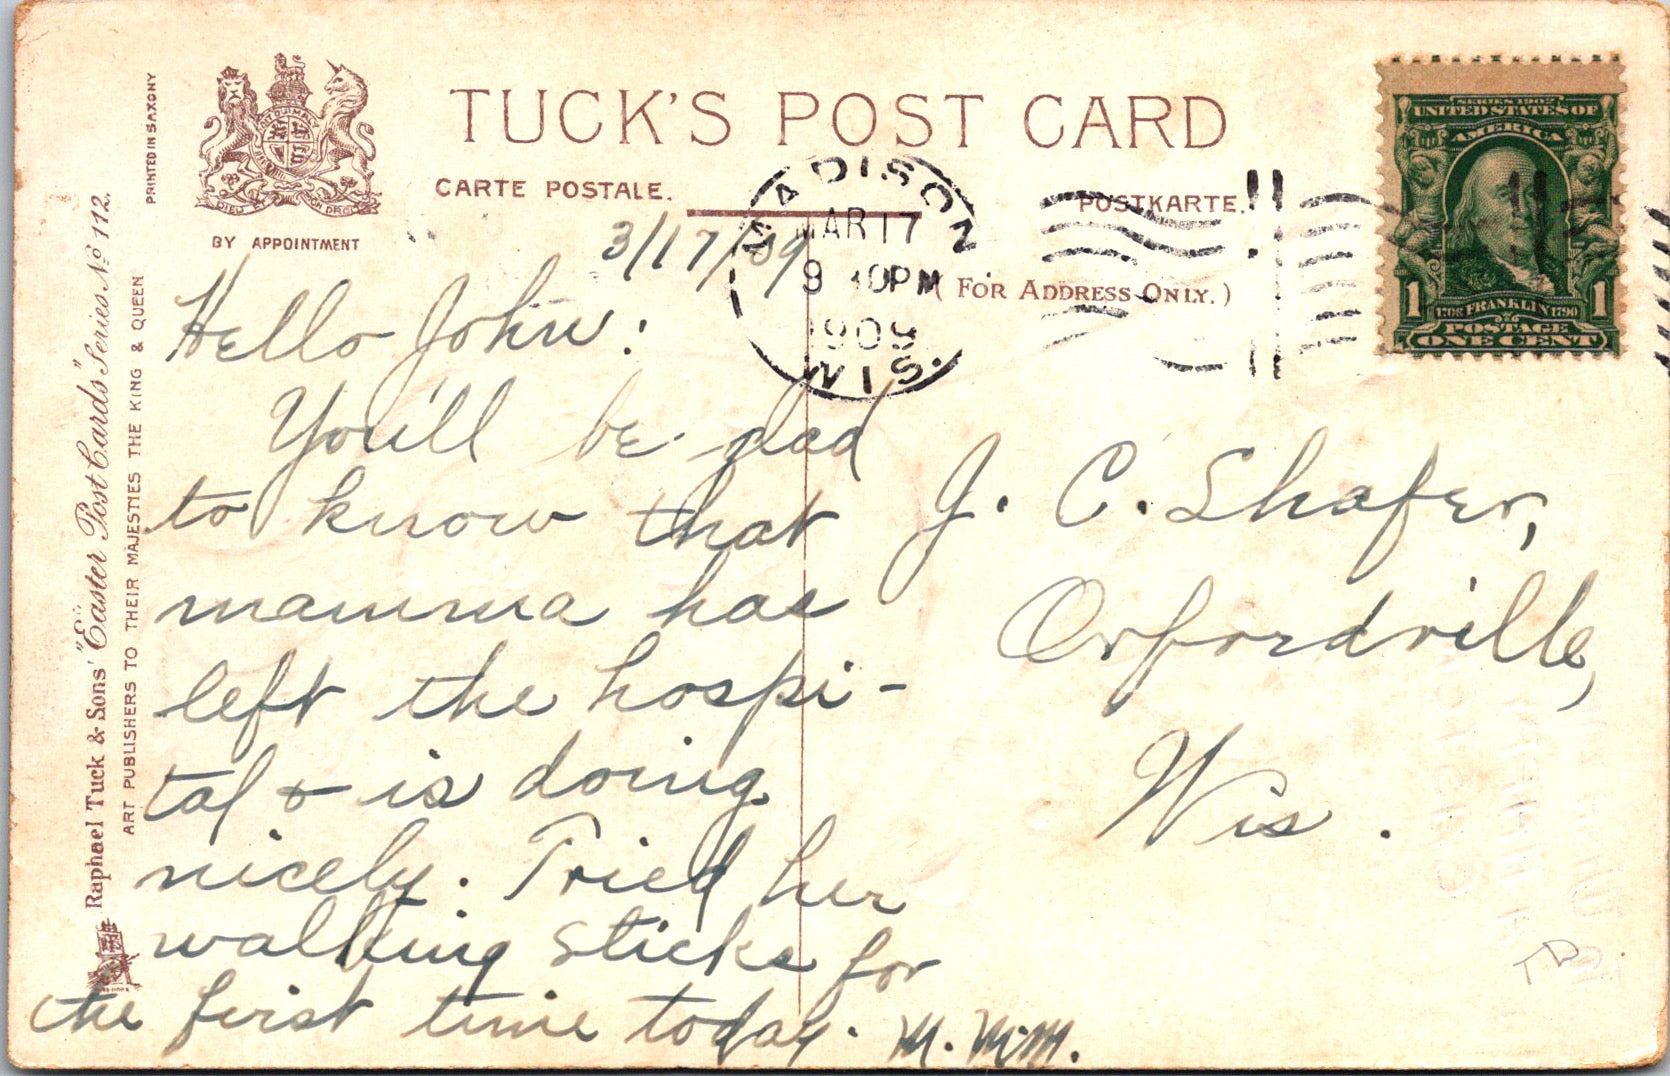 TUCK'S POST CARD
CARTE POSTALE.
POSTKARTE.
(FOR ADDRESS ONLY.)
BY APPOINTMENT
PRINTED IN SAXONY
Raphael Tuck & Sons' "Easter Post Cards" Series No 112.
ART PUBLISHERS TO THEIR MAJESTIES THE KING & QUEEN
MADISON
MAR 17
9 30PM
1909
WIS.
SERIES 1902
UNITED STATES OF
AMERICA
1 1
1706 FRANKLIN 1790
POSTAGE
ONE CENT
3/17/09
Hello John:
You'll be glad
to know that
mamma has
left the hospi-
tal & is doing
nicely. Tried her
walking sticks for
the first time today. M. McM.
J. C. Shafer,
Orfordville,
Wis.